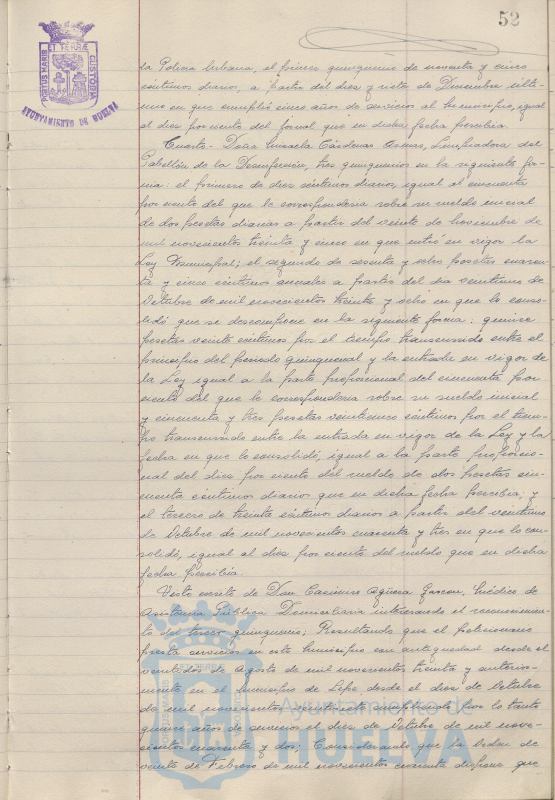 52
PORTUS MARIS ET TERRAE CUSTODIA
AYUNTAMIENTO DE HUELVA
la Policia Urbana, el primer quinquenio de noventa y cinco
centimos diarios, a partir del diez y siete de Diciembre últi-
mo en que cumplió cinco años de servicios al municipio, igual
al diez por ciento del jornal que en dicha fecha percibia.
Cuarto- Doña Micaela Cárdenas Limpiadora del
Pabellón de la Desinfección, tres quinquenios en la siguiente for-
ma: el primero de diez centimos diarios, igual al cincuenta
por ciento del que le corresponderia sobre su sueldo inicial
de dos pesetas diarias a partir del veinte de Noviembre de
mil novecientos treinta y cinco en que entró en vigor la
Ley Municipal; el segundo de sesenta y ocho pesetas cuaren-
ta y cinco centimos anuales a partir del dia veintiuno de
Octubre de mil novecientos treinta y ocho en que lo conso-
lidó que se descompone en la siguiente forma: quince
pesetas veinte centimos por el tiempo transcurrido entre el
principio del periodo quinquenal y la entrada en vigor de
la Ley igual a la parte proporcional del cincuenta por
ciento del que le corresponderia sobre su sueldo inicial
y cincuenta y tres pesetas veinticinco centimos por el tiem-
po transcurrido entre la entrada en vigor de la Ley y la
fecha en que lo consolidó, igual a la parte proporcio-
nal del diez por ciento del sueldo de dos pesetas cin-
cuenta centimos diarios que en dicha fecha percibia; y
el tercero de treinta centimos diarios a partir del veintiuno
de Octubre de mil novecientos cuarenta y tres en que lo con-
solidó, igual al diez por ciento del sueldo que en dicha
fecha percibia.
Visto escrito de Don Casimiro Agüera Médico de
Asistencia Pública Domiciliaria interesando el reconocimien-
to del tercer quinquenio; Resultando que el peticionario
presta servicios en este Municipio con antiguedad desde el
veintidos de Agosto de mil novecientos treinta y anterior-
mente en el municipio de Lepe desde el diez de Octubre
de mil novecientos veintisiete cumpliendo por lo tanto
quince años de servicios el diez de Octubre de mil nove-
cientos cuarenta y dos; Considerando que la Orden de
veinte de Febrero de mil novecientos cuarenta dispone que
Ayuntamiento de
HUELVA